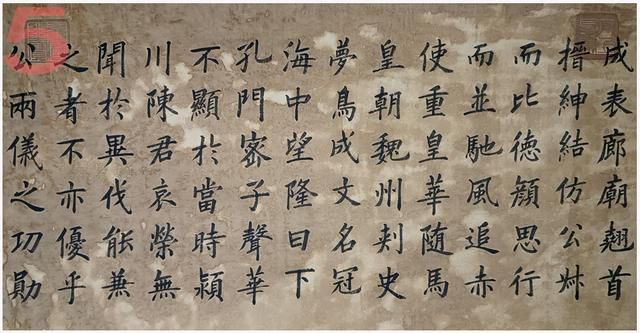 成表廊廟翹首
搢紳結仿公
而比德顏思行
而並馳風追赤
使重皇華隨馬
皇朝魏州刾史
夢鳥成文名冠
海中望隆日下
孔門宻子聲華
不顯於當時潁
川陳君哀榮無
聞於異伐能兼
之者不亦優乎
公兩儀之功勛
5